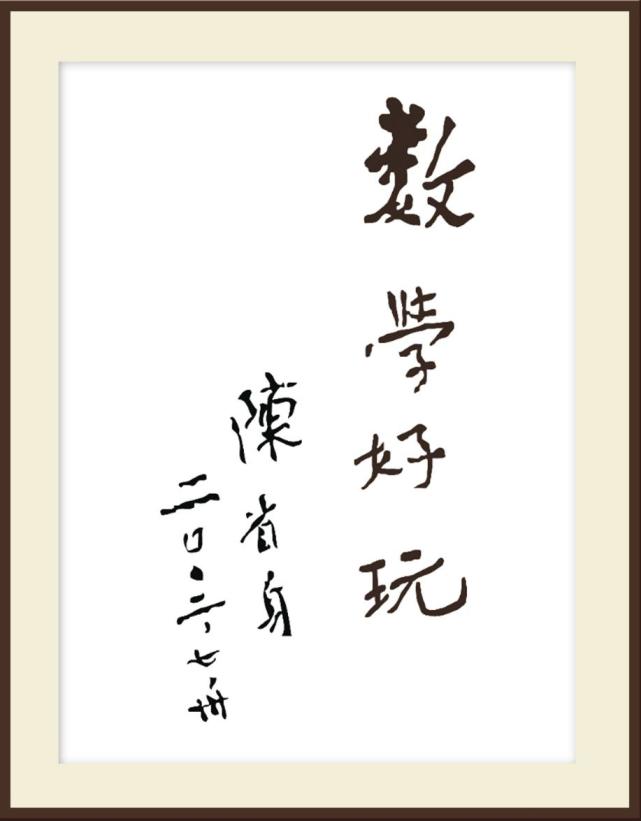 数學好玩
陳省身
二〇〇三、七、卅